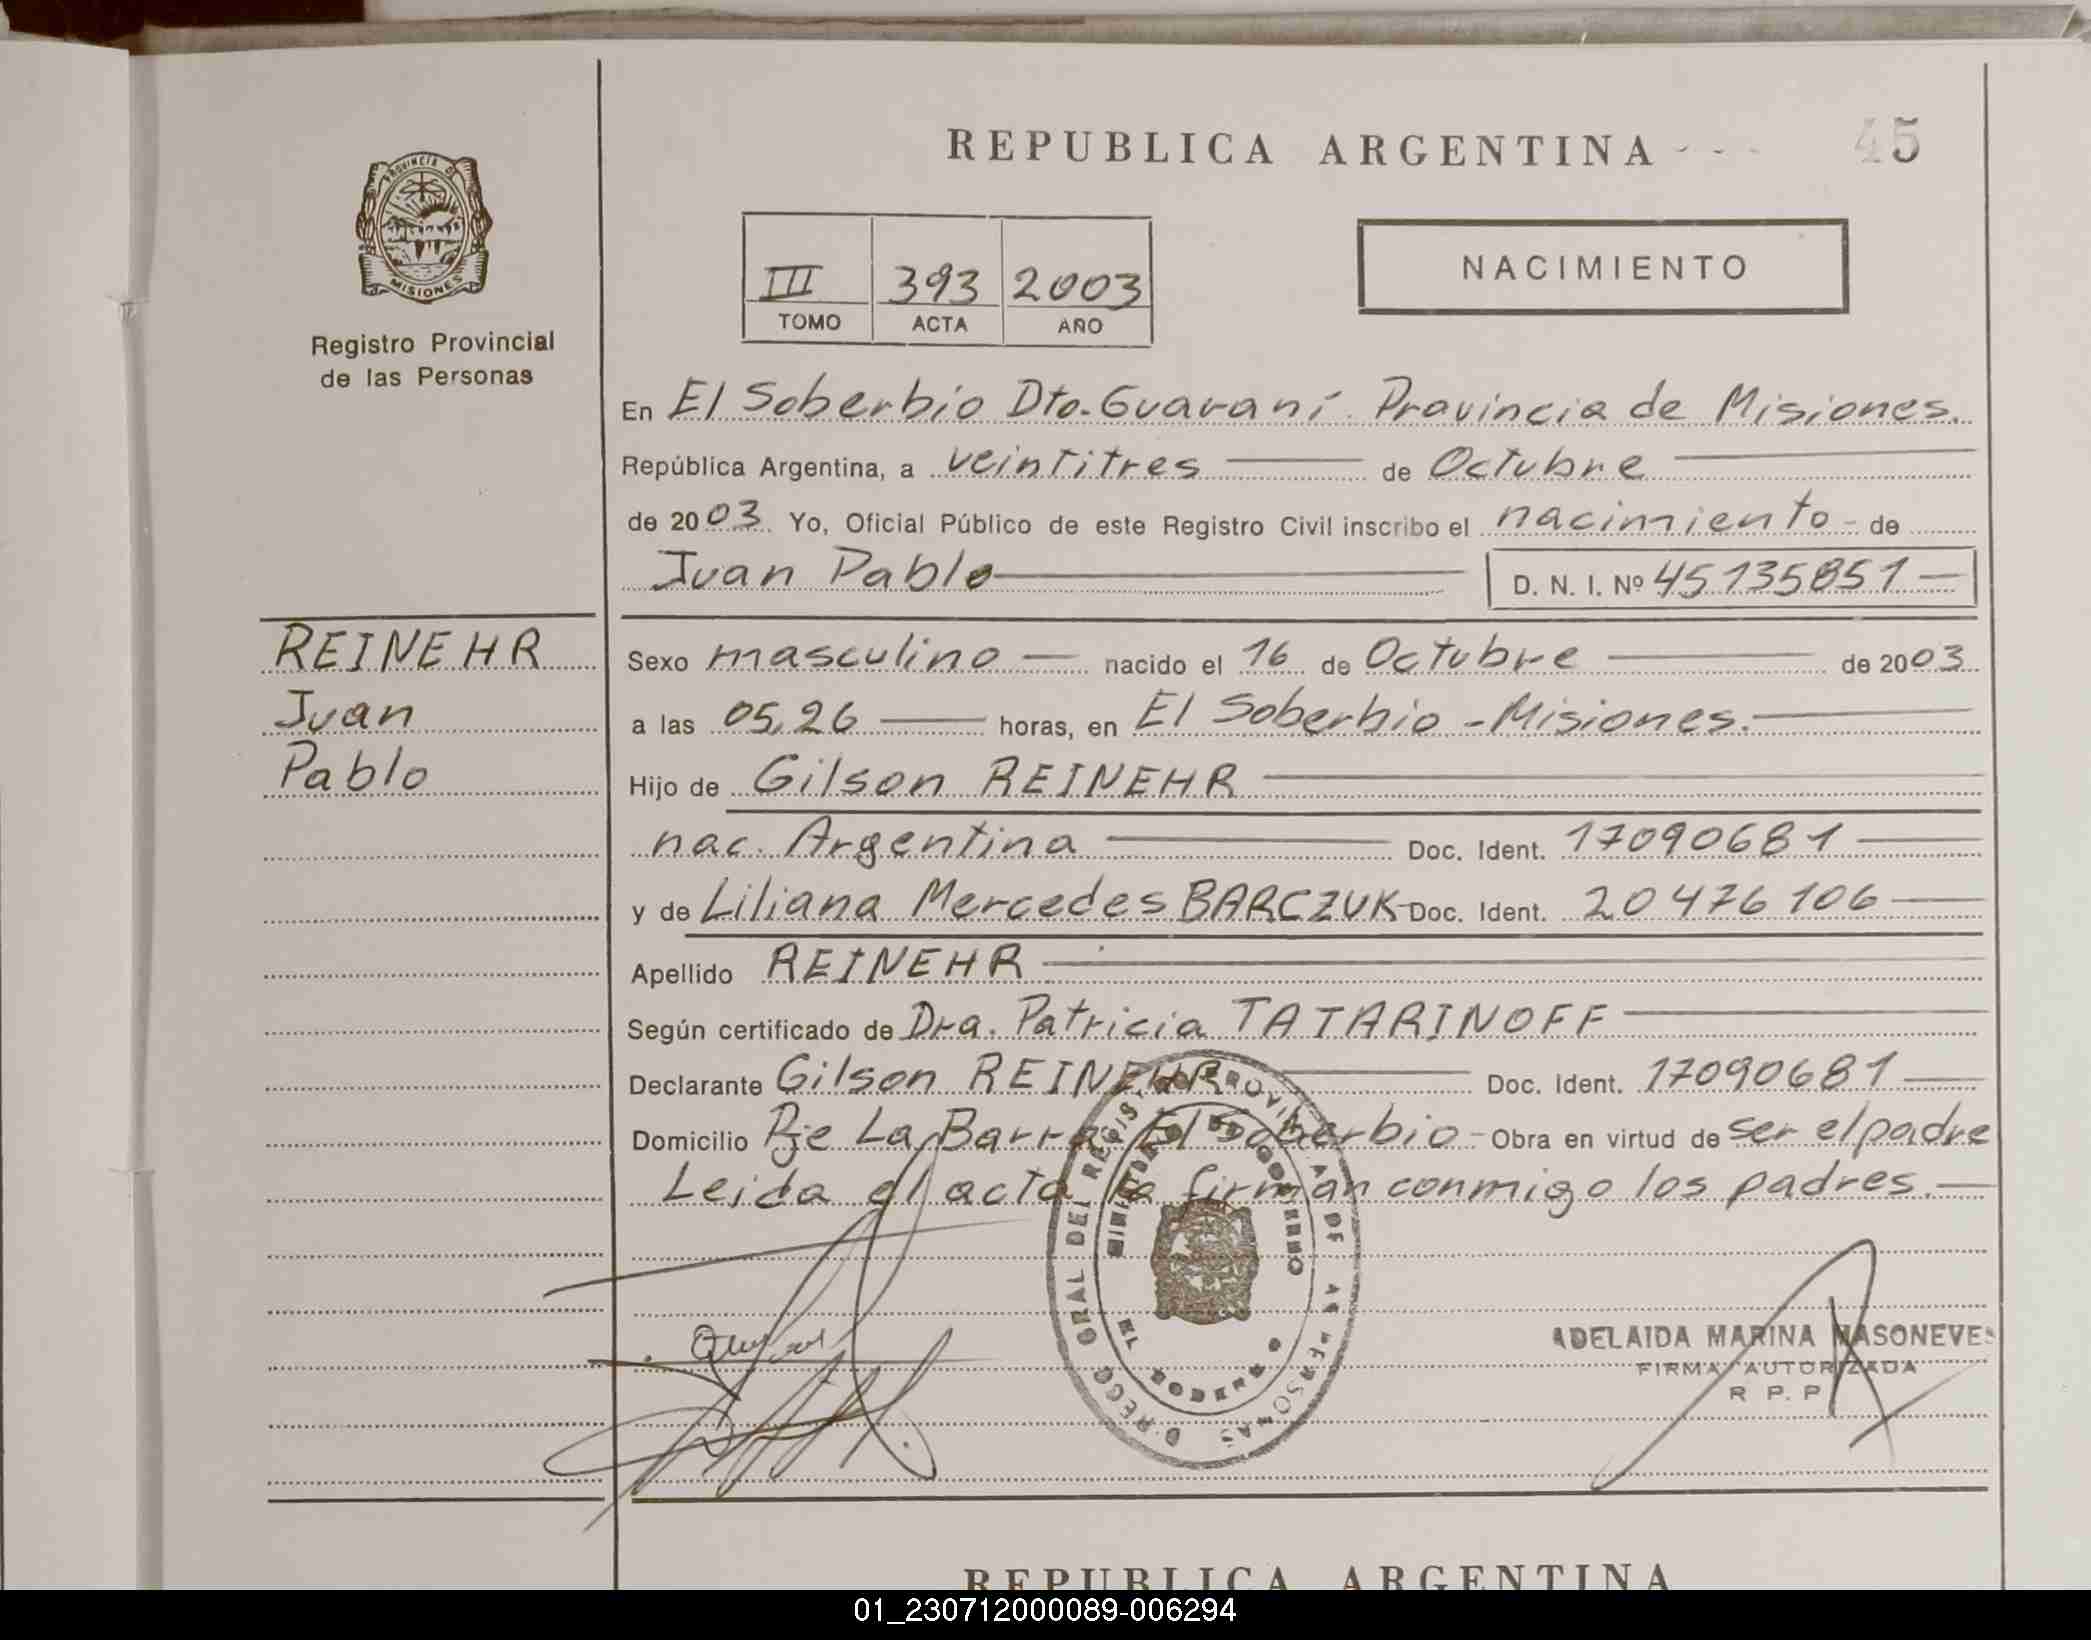 REPUBLICA ARGENTINA - - - 45
PROVINCIA DE
MISIONES
Registro Provincial
de las Personas
III 393 2003
TOMO ACTA AÑO
NACIMIENTO
En El Soberbio Dto. Guaraní Provincia de Misiones.
República Argentina, a veintitres de Octubre
de 2003 Yo, Oficial Público de este Registro Civil inscribo el nacimiento - de
Juan Pablo D. N. I. Nº 45135851
REINEHR
Juan
Pablo
Sexo masculino nacido el 16 de Octubre de 2003
a las 05,26 horas, en El Soberbio - Misiones.
Hijo de Gilson REINEHR
nac. Argentina Doc. Ident. 17090681
y de Liliana Mercedes BARCZUK Doc. Ident. 20476106
Apellido REINEHR
Según certificado de Dra. Patricia TATARINOFF
Declarante Gilson REINEHR Doc. Ident. 17090681
Domicilio Pje La Barra El Soberbio - Obra en virtud de ser el padre
Leida el acta la firman conmigo los padres.
MINISTERIO DE GOBIERNO
EL SOBERBIO
ADELAIDA MARINA MASONEVES
FIRMA AUTORIZADA
R P. P
REPUBLICA ARGENTINA
01_230712000089-006294